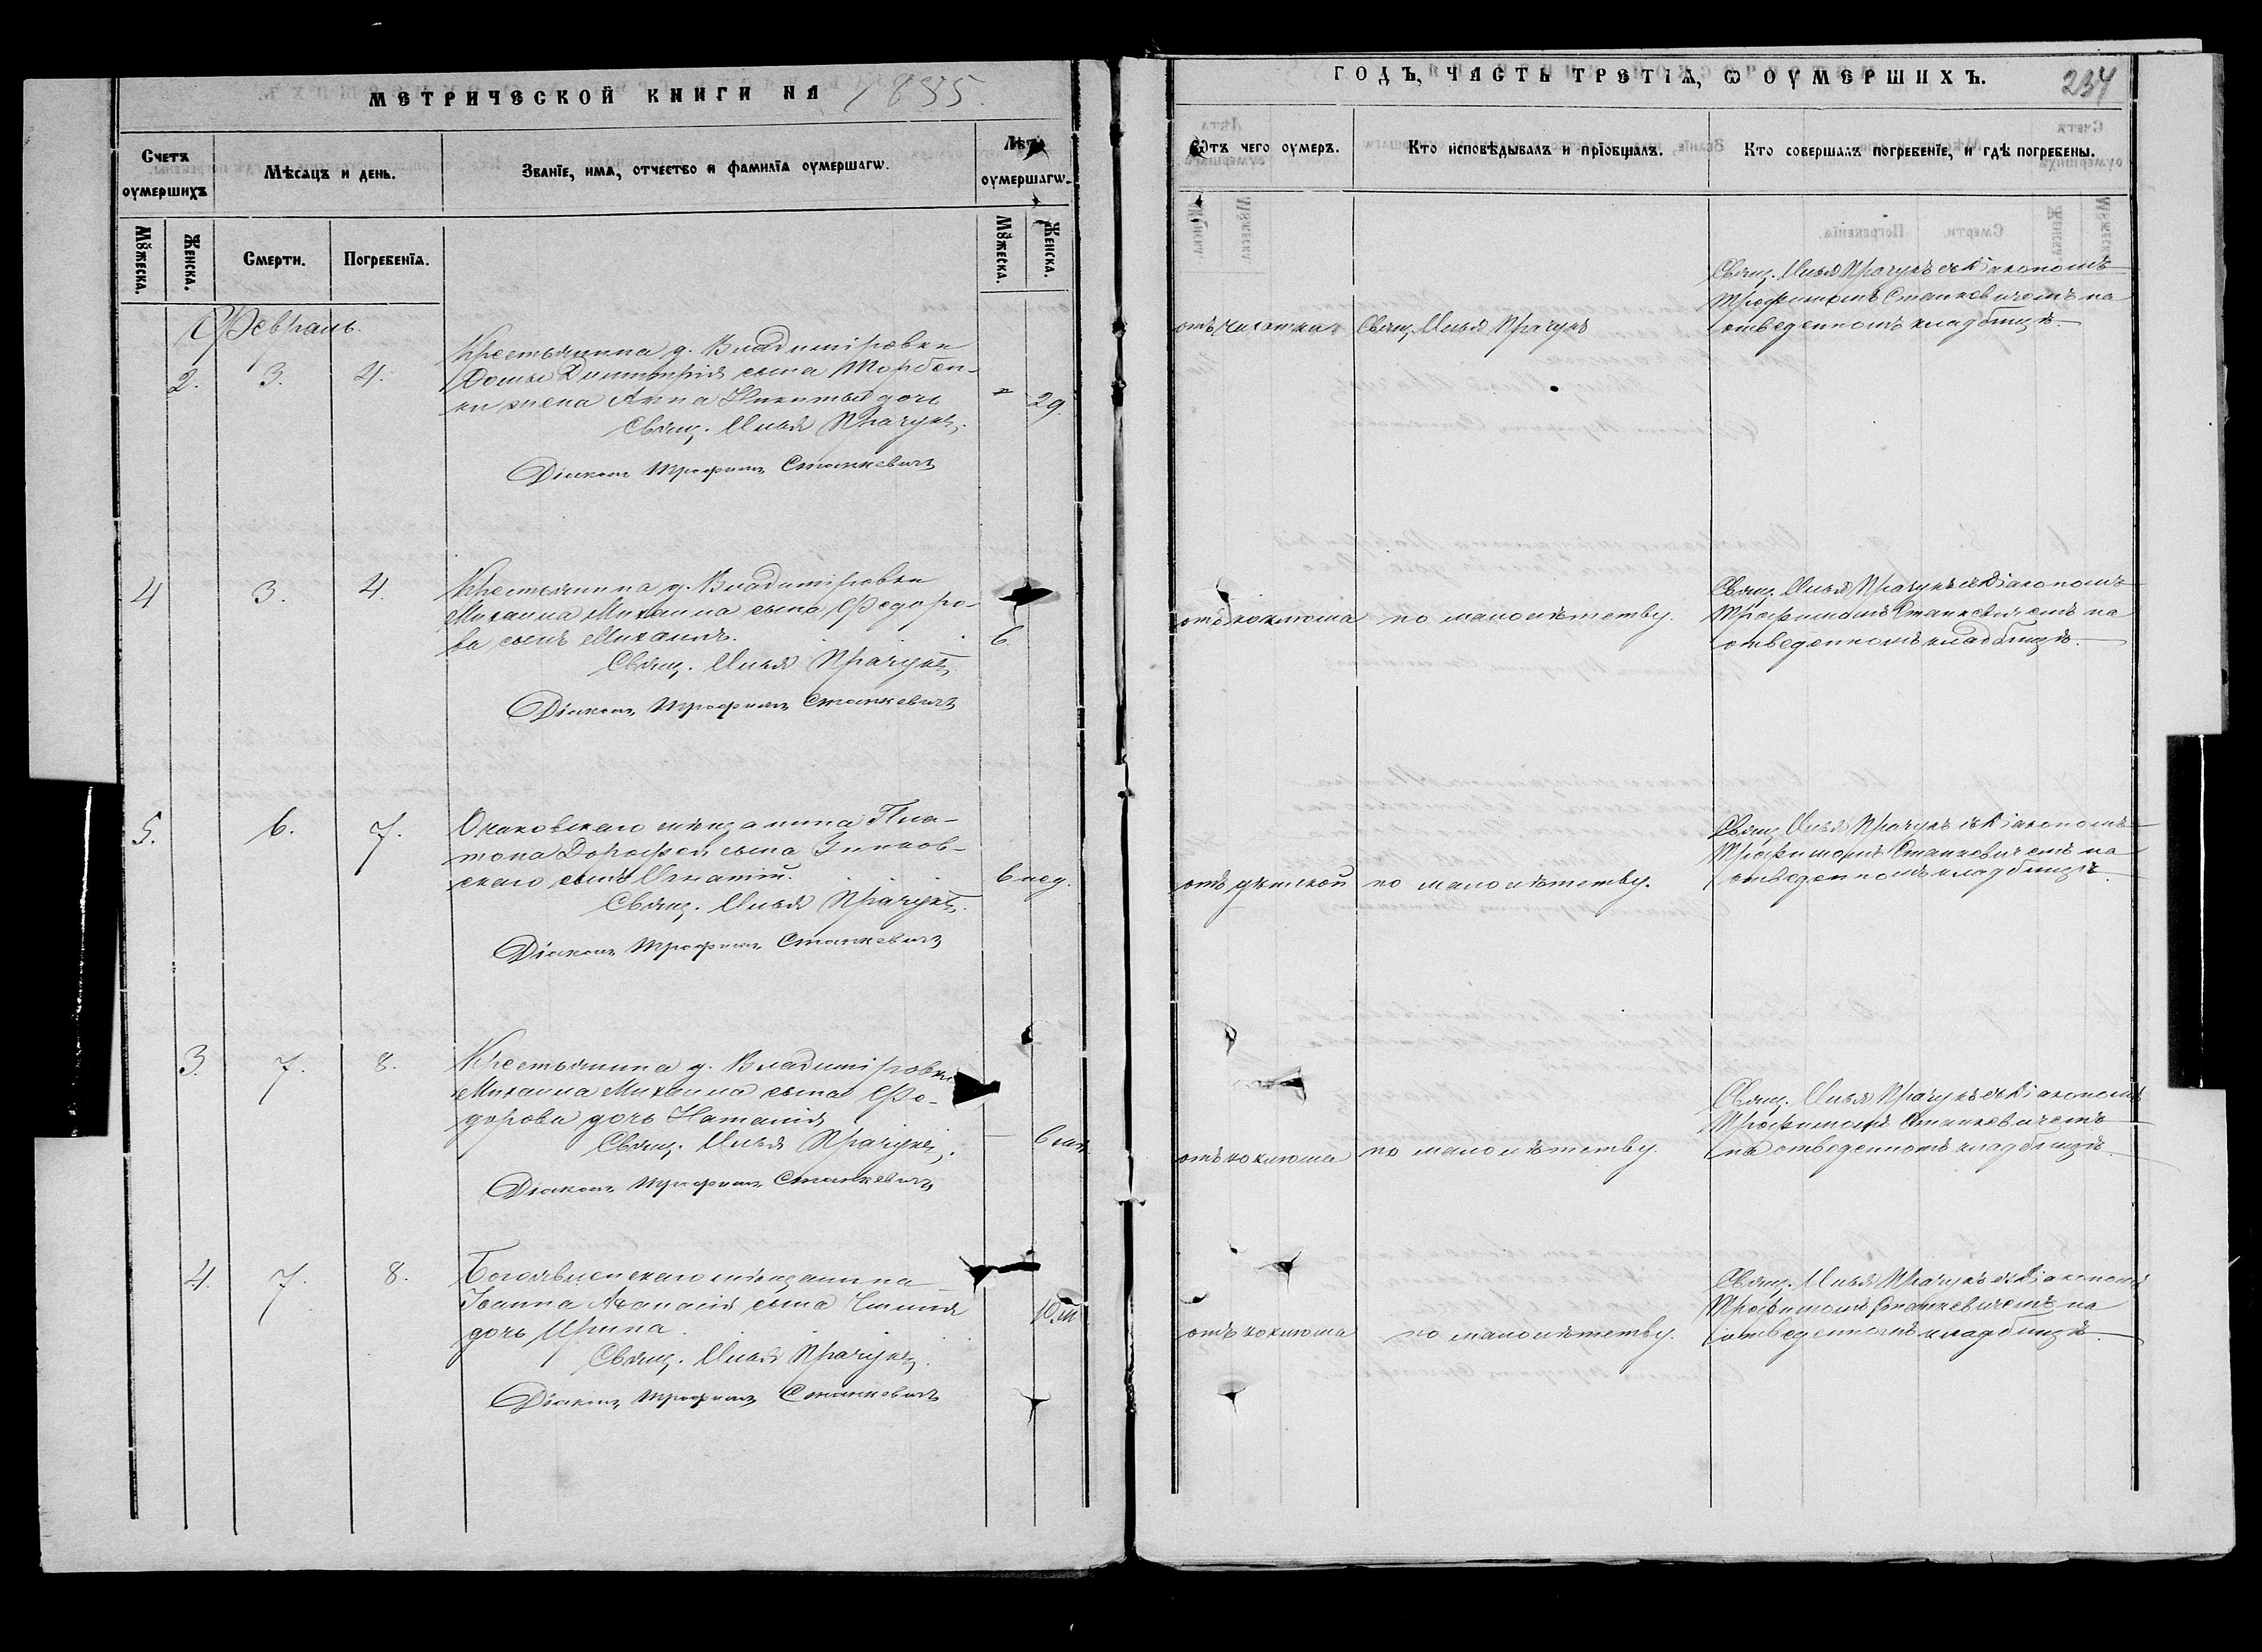 МЕТРИЧЕСКОЙ КНИГИ НА 1885.
Счетъ оумершихъ
Мѣсяцъ и день.
Званїе, имя, отчество и фамилїа оумершагѡ.
Лѣта оумершагѡ.
Мꙋжеска.
Женска.
Смерти.
Погребенїа.
Мꙋжеска.
Женска.
Февраль.
2. 3. 4.
Крестьянина д. Владиміровки
Димитрія сына Торбен-
ки жена Анна Никиты дочь
29.
Свящ. Илья Прачукъ.
Діаконъ Трофимъ Станкевичъ
4 3. 4.
Крестьянина д. Владиміровки
Михаила Михаила сына Федоро-
ва сынъ Михаилъ.
6.
Свящ. Илья Прачукъ.
Діаконъ Трофимъ Станкевичъ
5. 6. 7.
Очаковскаго мѣщанина Пла-
тона Дорофея сына
скаго сынъ Игнатій.
6 нед.
Свящ. Илья Прачукъ.
Діаконъ Трофимъ Станкевичъ
3. 7. 8.
Крестьянина д. Владиміровки
Михаила Михаила сына Фе-
дорова дочь Наталія
6 м.
Свящ. Илья Прачукъ.
Діаконъ Трофимъ Станкевичъ
4. 7. 8.
Богоявленскаго мѣщанина
Іоанна Аѳанасія сына
дочь Ирина.
10 м.
Свящ. Илья Прачукъ.
Діаконъ Трофимъ Станкевичъ
ГОДЪ, ЧАСТЬ ТРЕТІѦ, Ѡ ОУМЕРШИХЪ.
234
Отъ чего оумеръ.
Кто исповѣдывалъ и прїобщалъ.
Кто совершалъ погребенїе, и гдѣ погребены.
отъ чахотки
Свящ. Илья Прачукъ
Свящ. Илья Прачукъ съ діакономъ
Трофимомъ Станкевичемъ на
отведенномъ кладбищѣ.
отъ коклюша
по малолѣтству.
Свящ. Илья Прачукъ съ діакономъ
Трофимомъ Станкевичемъ на
отведенномъ кладбищѣ.
отъ дѣтской
по малолѣтству.
Свящ. Илья Прачукъ съ діакономъ
Трофимомъ Станкевичемъ на
отведенномъ кладбищѣ.
отъ коклюша
по малолѣтству.
Свящ. Илья Прачукъ съ діакономъ
Трофимомъ Станкевичемъ
на отведенномъ кладбищѣ.
отъ коклюша
по малолѣтству.
Свящ. Илья Прачукъ съ діакономъ
Трофимомъ Станкевичемъ на
отведенномъ кладбищѣ.